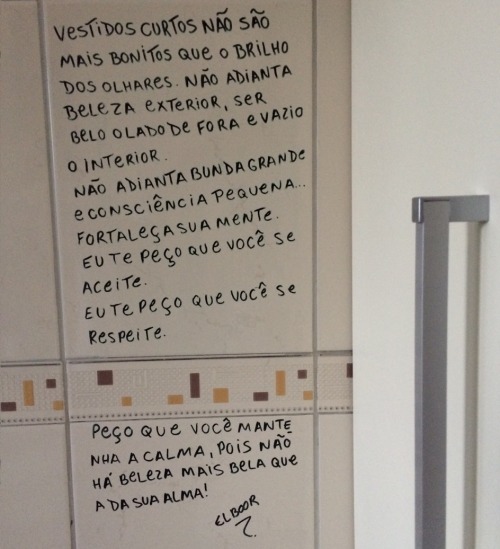 VESTIDOS CURTOS NÃO SÃO
MAIS BONITOS QUE O BRILHO
DOS OLHARES. NÃO ADIANTA
BELEZA EXTERIOR, SER
BELO O LADO DE FORA E VAZIO
O INTERIOR.
NÃO ADIANTA BUNDA GRANDE
E CONSCIÊNCIA PEQUENA...
FORTALEÇA SUA MENTE.
EU TE PEÇO QUE VOCÊ SE
ACEITE.
EU TE PEÇO QUE VOCÊ SE
RESPEITE.
PEÇO QUE VOCÊ MANTE
NHA A CALMA, POIS NÃO
HÁ BELEZA MAIS BELA QUE
A DA SUA ALMA!
ELBOOR